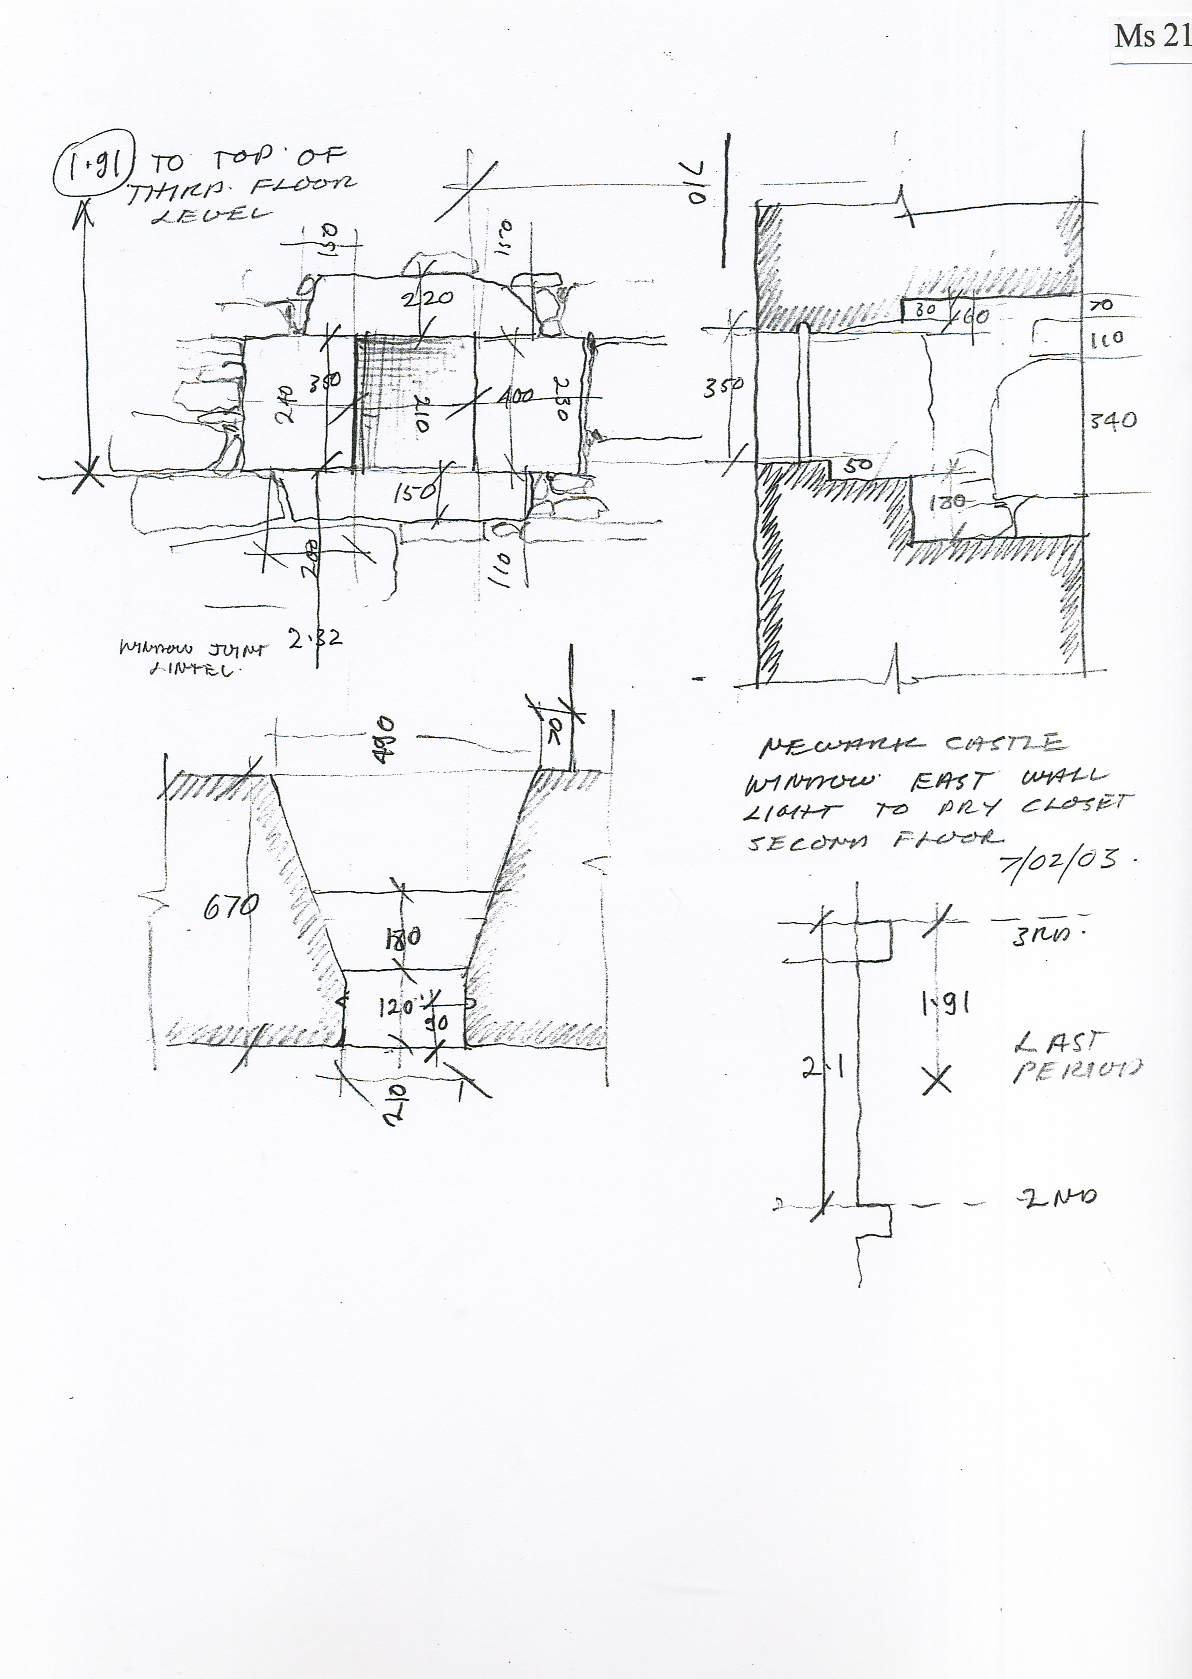 Ms 21
1.91 TO TOP OF
THIRD. FLOOR
LEVEL
710
150
150
220
30
60
70
110
350
240
350
210
400
230
340
50
150
130
200
110
2.32
WINDOW JOINT
LINTEL.
490
70
NEWARK CASTLE
WINDOW EAST WALL
LIGHT TO DRY CLOSET
SECOND FLOOR
7/02/03.
670
180
120
90
210
3RD.
1.91
2.1
LAST
PERIOD
2ND